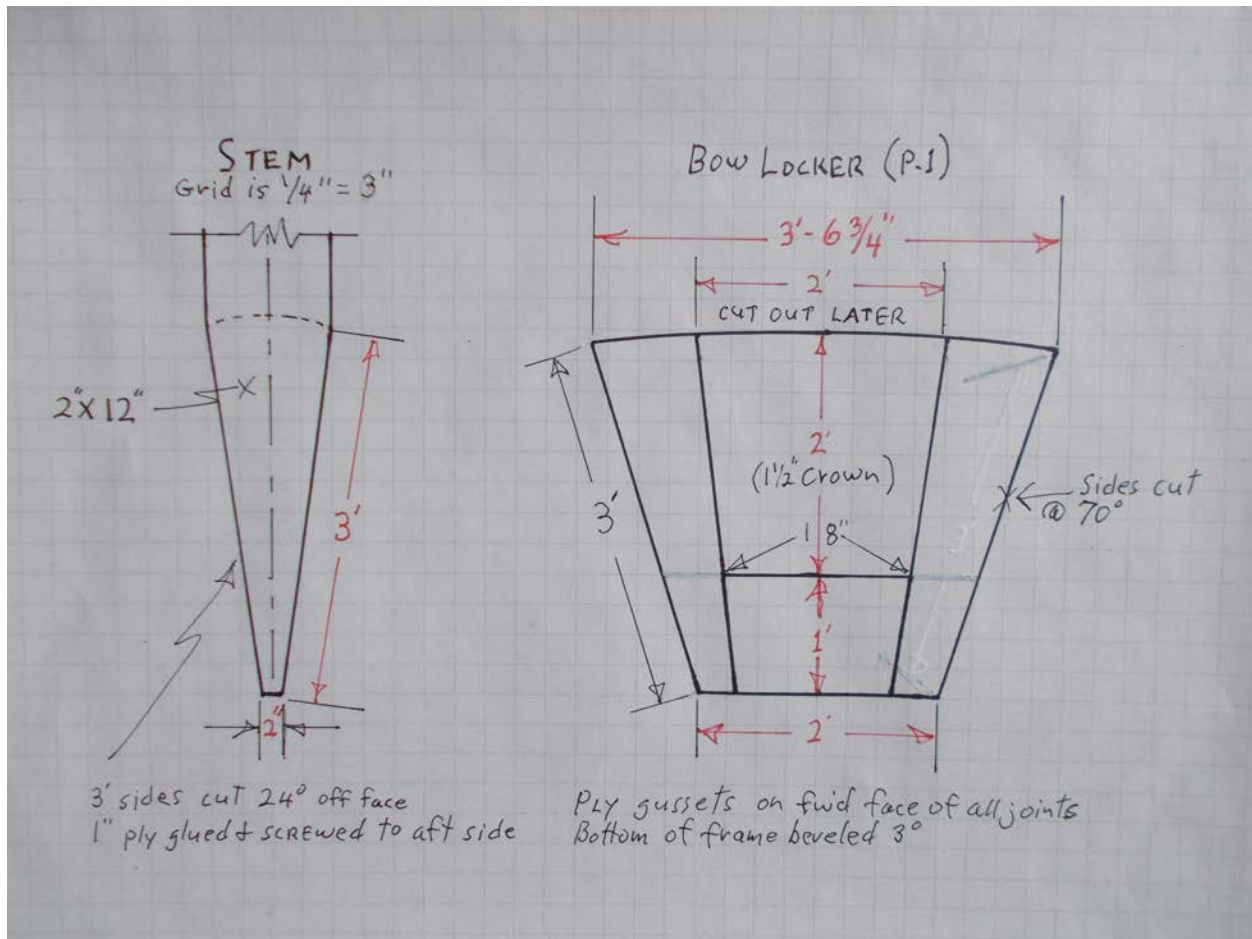 STEM
Grid is 1/4" = 3"
2"X 12"
3'
2"
3' sides cut 24° off face
1" ply glued & SCREWED to aft side
BOW LOCKER (P.1)
3'- 6 3/4"
2'
CUT OUT LATER
2'
(1 1/2" Crown)
1 8"
3'
Sides cut
@ 70°
1'
2'
PLY gussets on fwd face of all joints
Bottom of frame beveled 3°